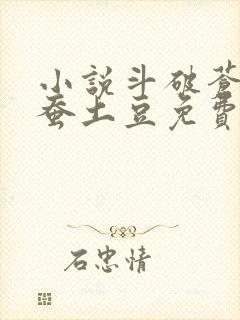 小說斗破蒼
蚕土豆免費
石忠情